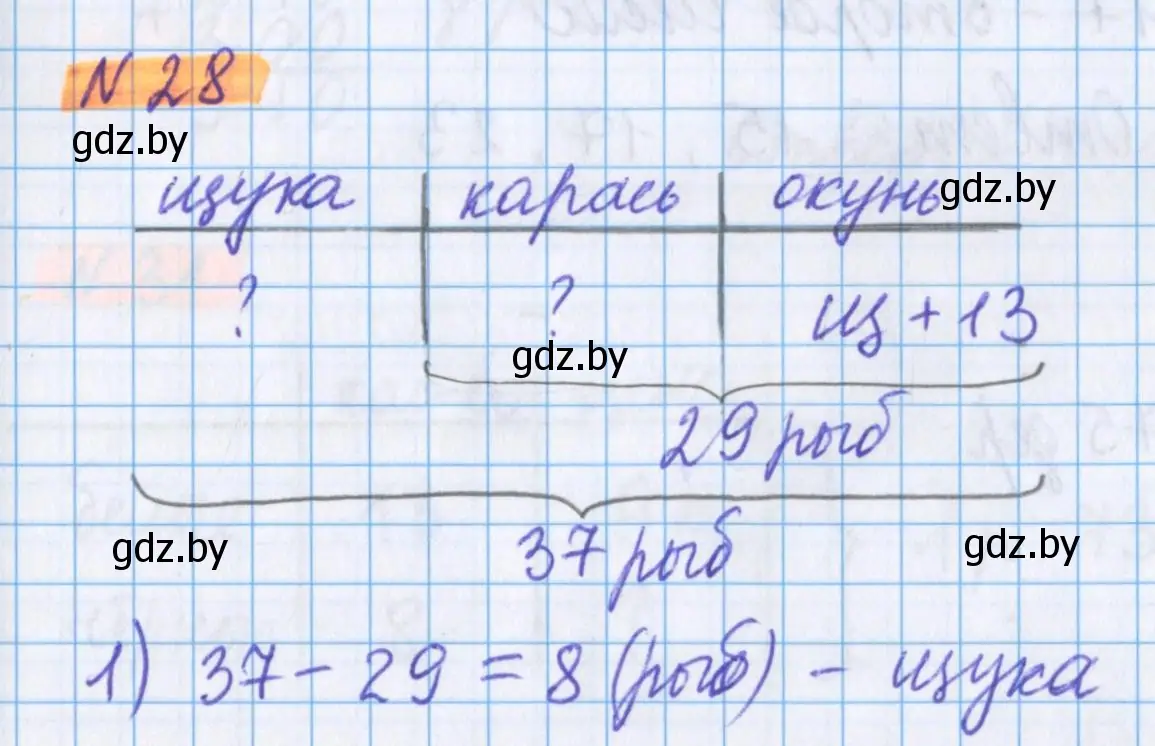 N 28
gdz.by
щука карась окунь gdz.by
? ? щ + 13
gdz.by
29 рыб
37 рыб
gdz.by gdz.by
1) 37 - 29 = 8 (рыб) - щука